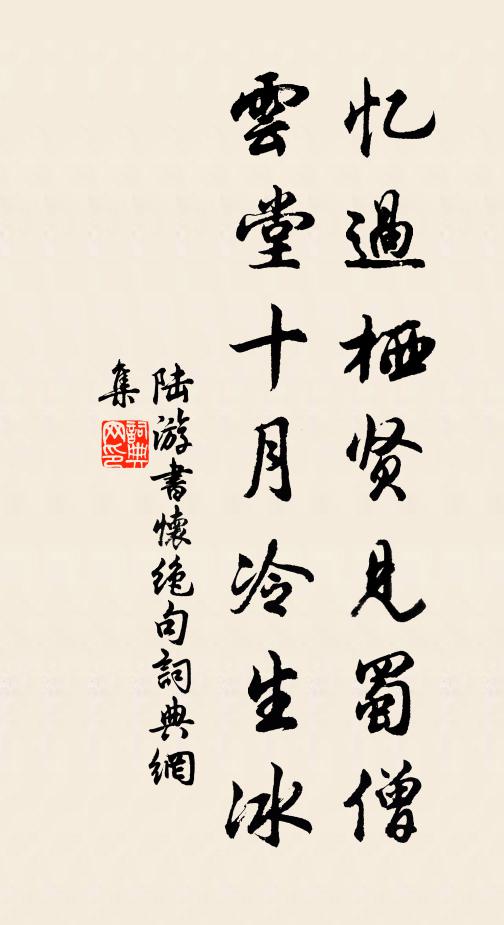 忆過栖贤見蜀僧
雲堂十月冷生冰
陆游書懷绝句詞典網
集
詞典网印